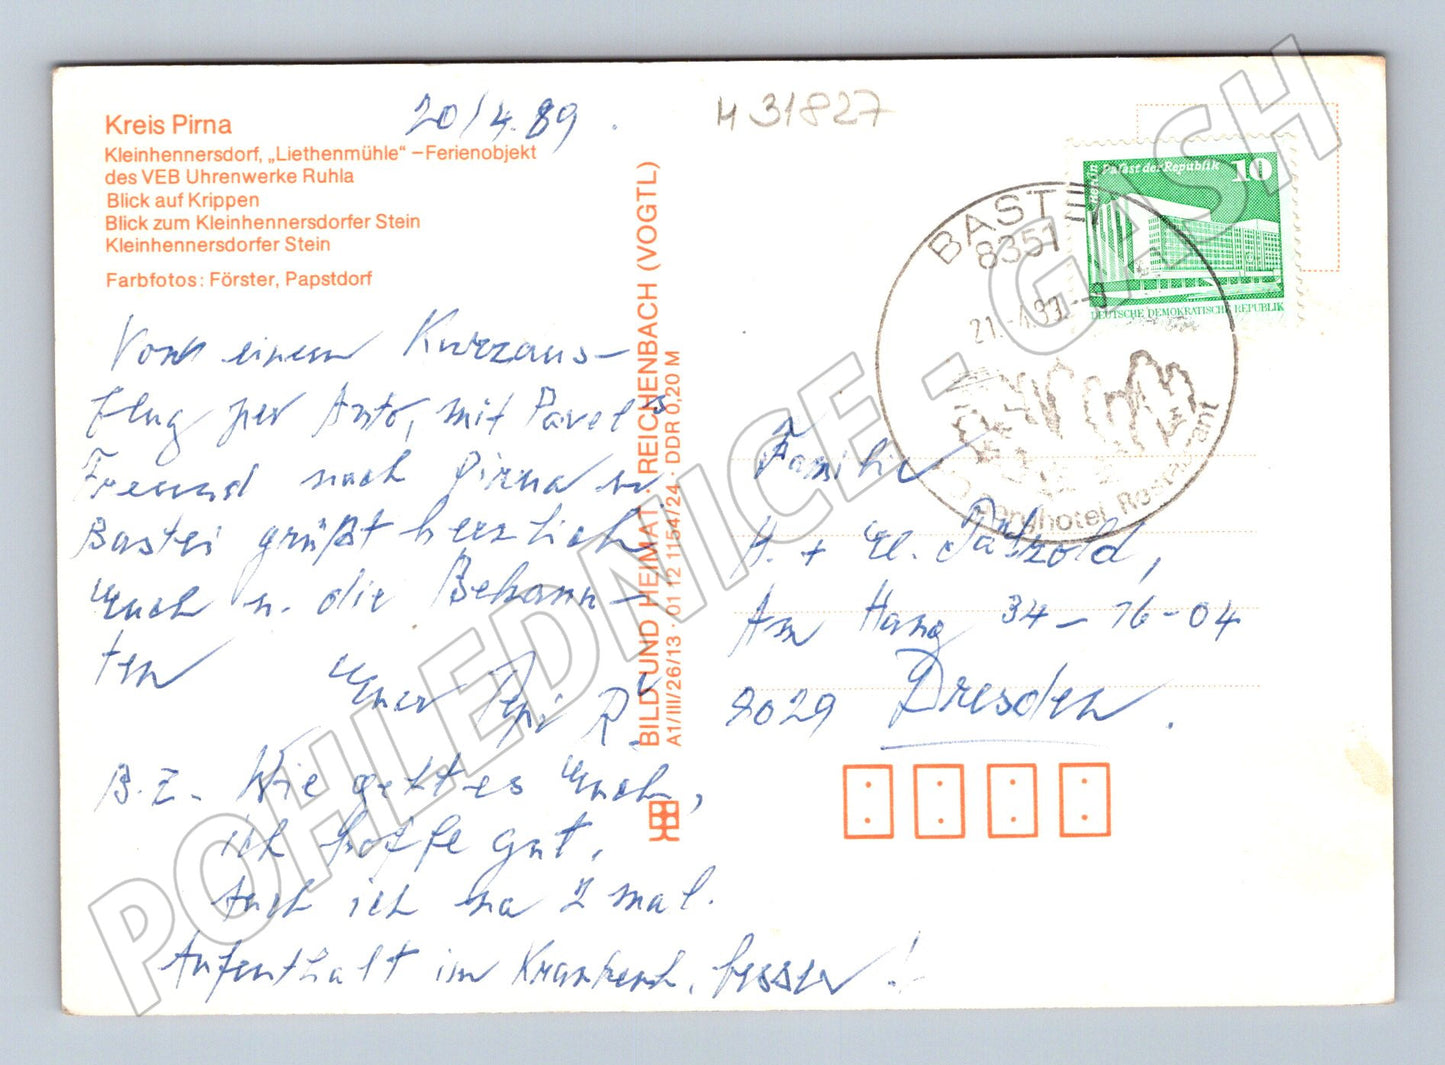 Kreis Pirna
Kleinhennersdorf, „Liethenmühle“ – Ferienobjekt
des VEB Uhrenwerke Ruhla
Blick auf Krippen
Blick zum Kleinhennersdorfer Stein
Kleinhennersdorfer Stein
Farbfotos: Förster, Papstdorf
20/4.89.
Von einem Kurzaus-
flug per Auto, mit Pavel's
Freund nach Pirna u
Bastei grüßt herzlich
Euch u. die Bekann-
ten
Euer Pepi R.
B.Z. Wie geht es Euch,
ich hoffe gut.
Auch ich na 2 mal.
Aufenthalt im Krankenh. besser!
BILD UND HEIMAT · REICHENBACH (VOGTL)
A1/III/26/13 · 01 12 1154/24 · DDR 0,20 M
H 31827
Palast der Republik 10
Berlin
DEUTSCHE DEMOKRATISCHE REPUBLIK
BASTEI
8351
21.-4.89
Berghotel Restaurant
Familie
H. + E. Pätzold,
Am Hang 34-16-04
8029 Dresden.
POHLEDNICE - GJASH